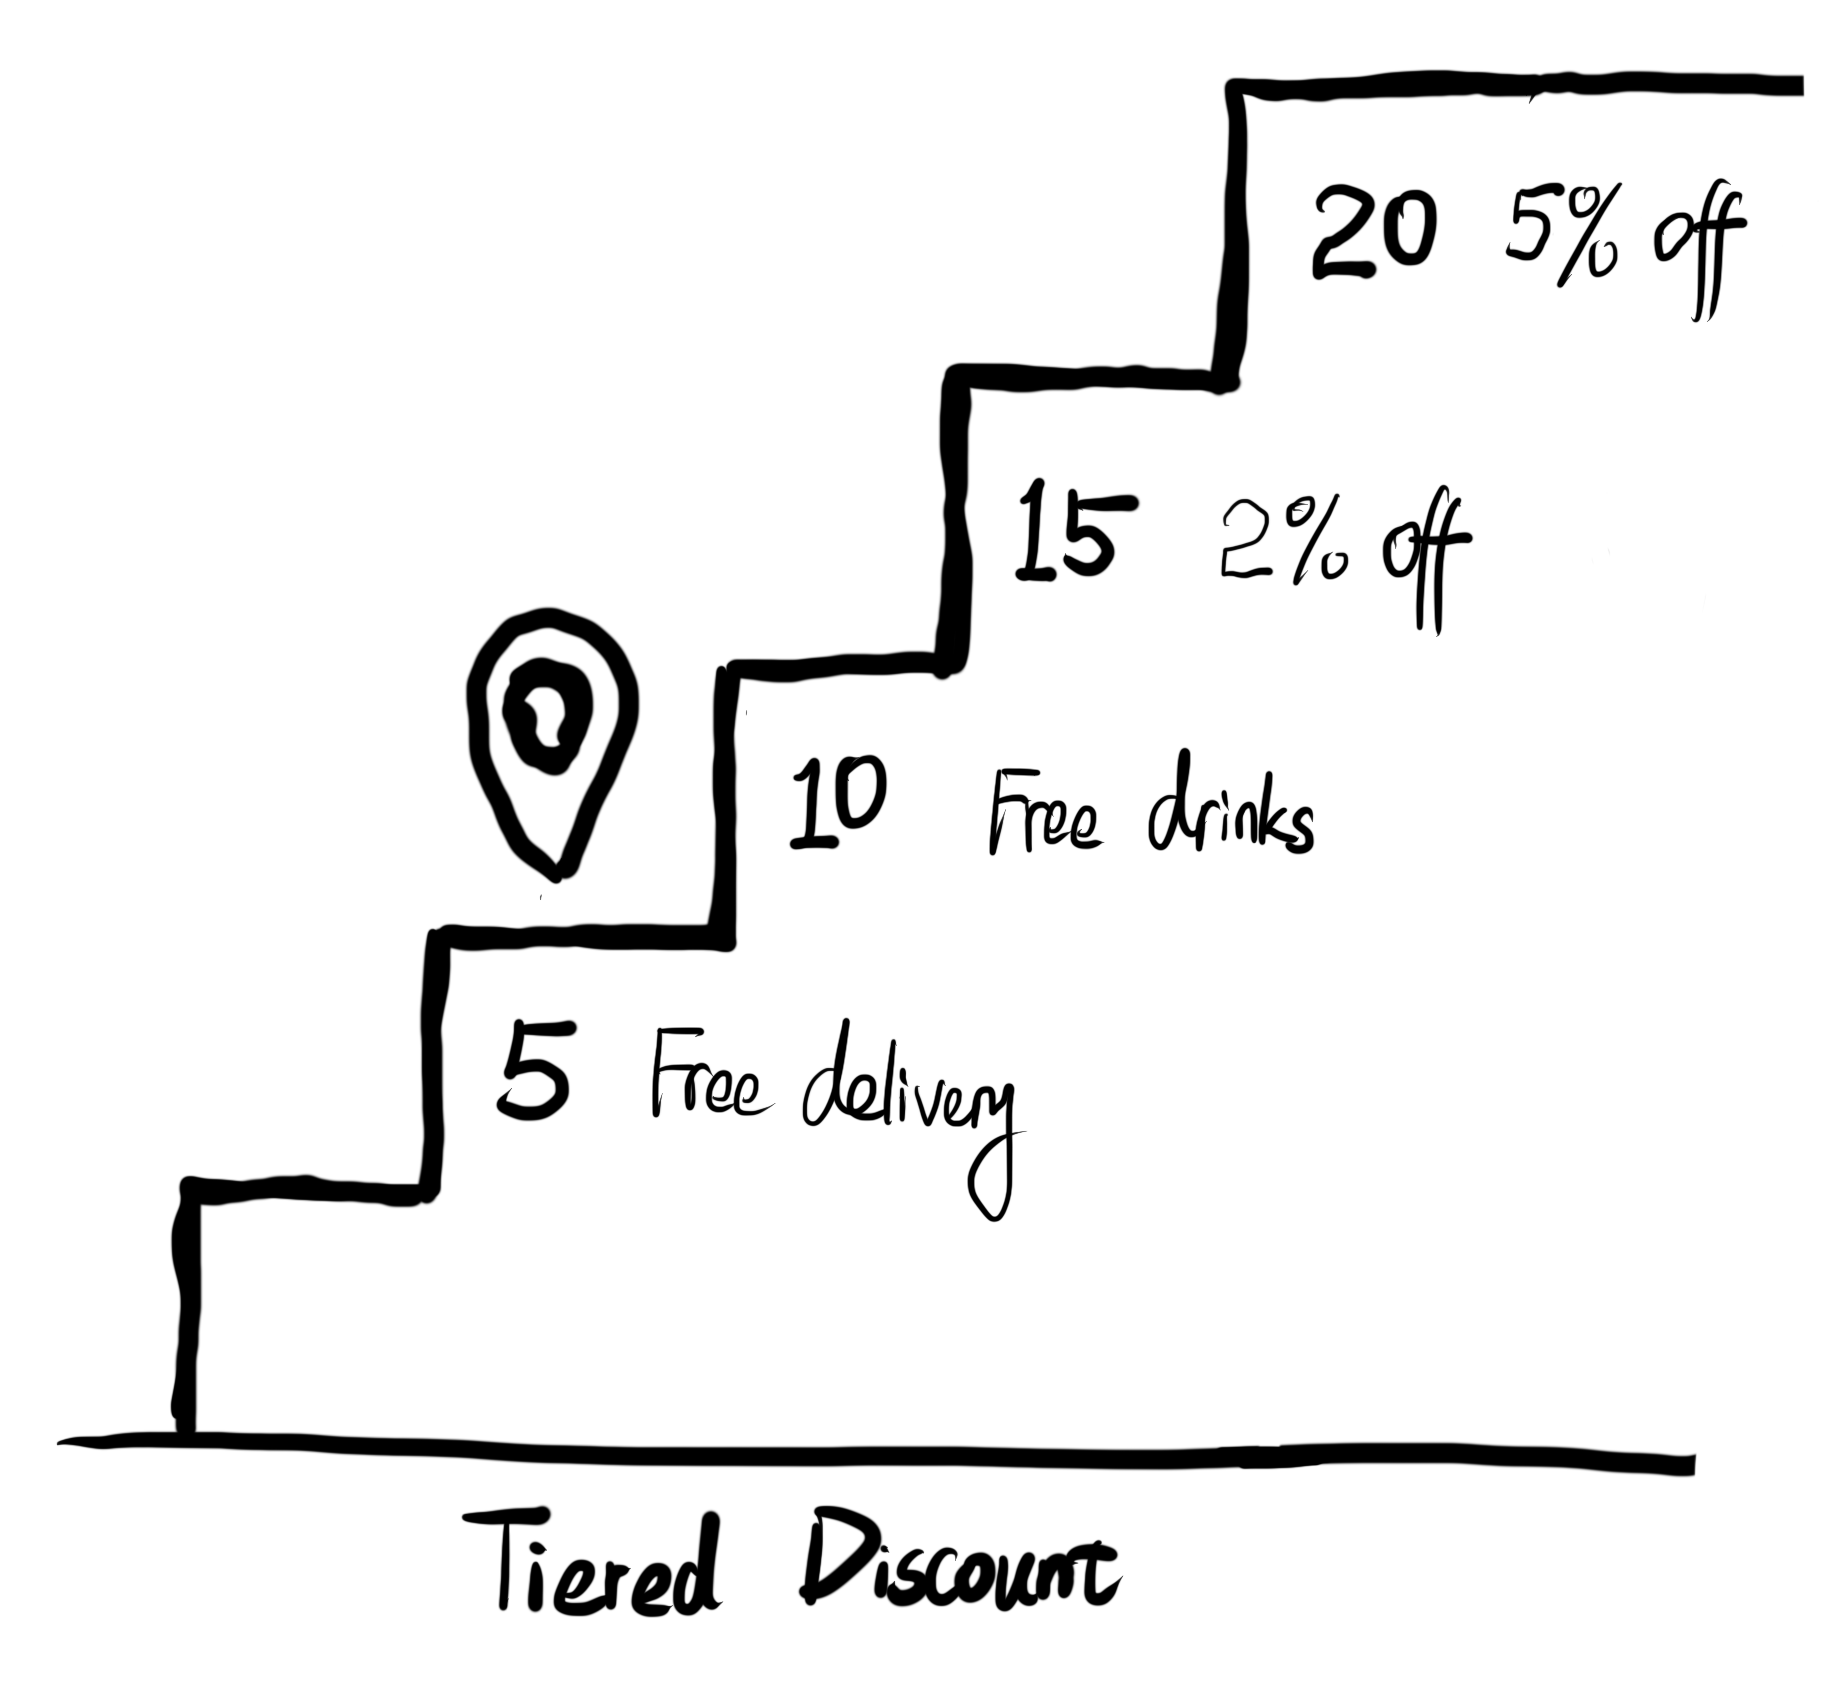 20 5% off
15 2% off
10 Free drinks
5 Free delivery
Tiered Discount